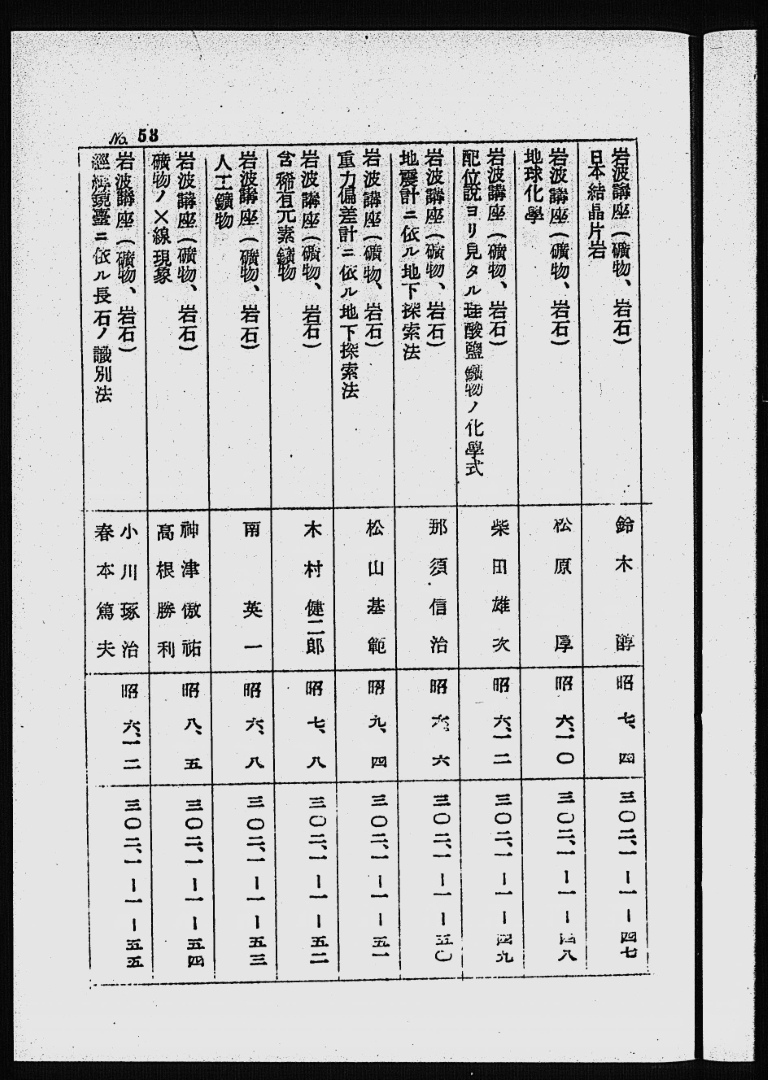 No. 53
岩波講座(礦物、岩石)
日本結晶片岩
鈴木醇
昭七、四
三〇二、一―一―四七
岩波講座(礦物、岩石)
地球化學
松原厚
昭六、一〇
三〇二、一―一―四八
岩波講座(礦物、岩石)
配位説ヨリ見タル珪酸鹽鑛物ノ化學式
柴田雄次
昭六、一二
三〇二、一―一―四九
岩波講座(礦物、岩石)
地震計ニ依ル地下探索法
那須信治
昭六、六
三〇二、一―一―五〇
岩波講座(礦物、岩石)
重力偏差計ニ依ル地下探索法
松山基範
昭九、四
三〇二、一―一―五一
岩波講座(礦物、岩石)
含稀有元素鑛物
木村健二郎
昭七、八
三〇二、一―一―五二
岩波講座(礦物、岩石)
人工鑛物
南英一
昭六、八
三〇二、一―一―五三
岩波講座(礦物、岩石)
礦物ノX線現象
神津俶祐
高根勝利
昭八、五
三〇二、一―一―五四
岩波講座(礦物、岩石)
經緯鏡臺ニ依ル長石ノ識別法
小川琢治
春本篤夫
昭六、一二
三〇二、一―一―五五